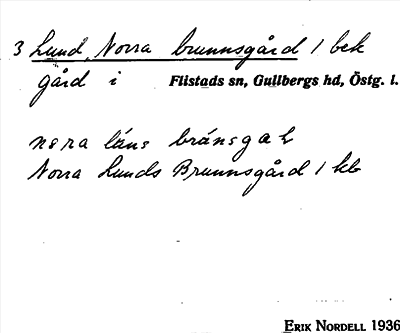 3 Lund, Norra brunnsgård 1 bek
gård i Flistads sn, Gullbergs hd, Östg. l.
nora läns brånsgal
Norra Lunds Brunnsgård 1 kb
ERIK NORDELL 1936